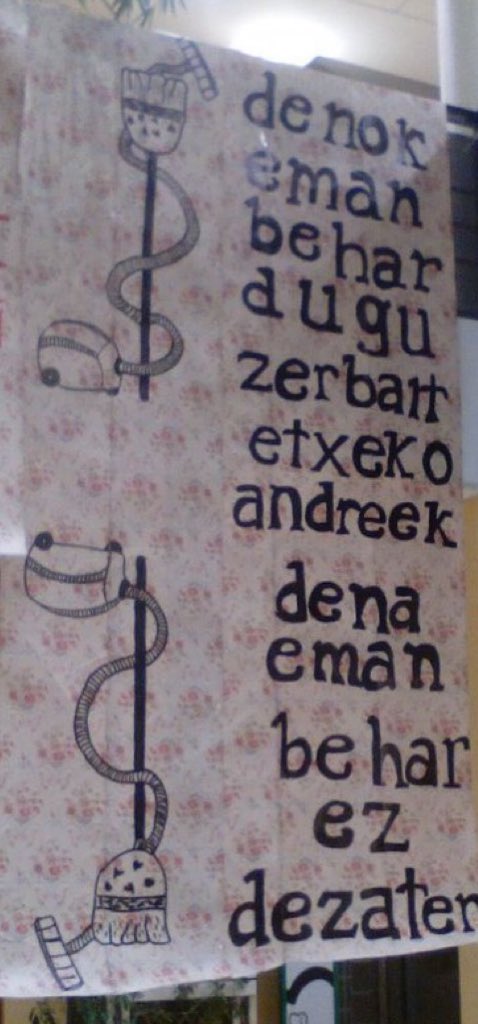 denok
eman
behar
dugu
zerbait
etxeko
andreek
dena
eman
behar
ez
dezaten